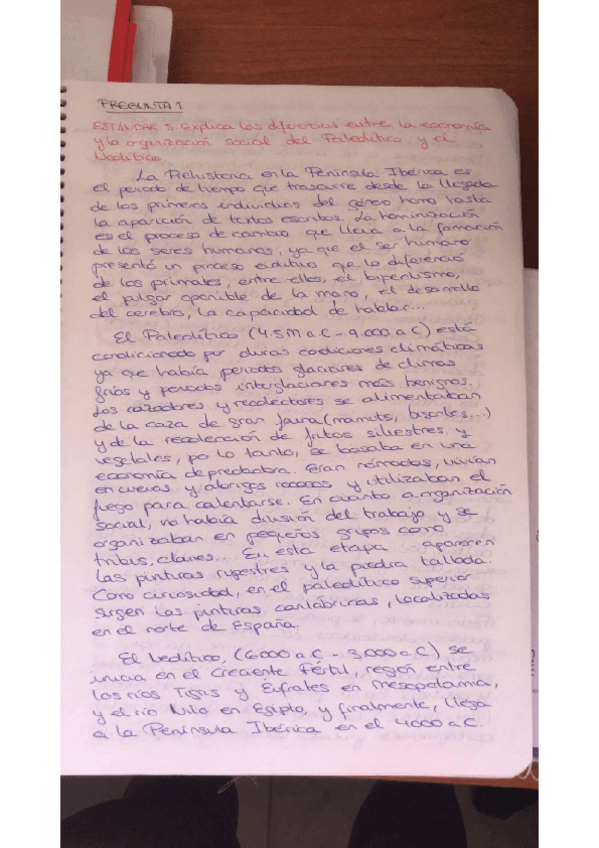 PREGUNTA 1
ESTÁNDAR 5. Explica las diferencias entre la economía
y la organización social del Paleolítico y el
Neolítico.
La Prehistoria en la Península Ibérica es
el periodo de tiempo que trascurre desde la llegada
de los primeros individuos del género homo hasta
la aparición de textos escritos. La hominización
es el proceso de cambio que lleva a la formación
de los seres humanos, ya que el ser humano
presentó un proceso evolutivo que lo diferenció
de los primates, entre ellos, el bipedismo,
el pulgar oponible de la mano, el desarrollo
del cerebro, la capacidad de hablar...
El Paleolítico (4.5M a.C - 9.000 a.C) está
condicionado por duras condiciones climáticas
ya que había periodos glaciares de climas
fríos y periodos interglaciares más benignos.
Los cazadores y recolectores se alimentaban
de la caza de gran fauna (mamuts, bisontes,...)
y de la recolección de frutos silvestres, y
vegetales, po lo tanto, se basaba en una
economía depredadora. Eran nómadas, vivían
en cuevas y abrigos rocosos y utilizaban el
fuego para calentarse. En cuanto a organización
social, no había división del trabajo y se
organizaban en pequeños grupos como
tribus, clanes... En esta etapa aparecen
las pinturas rupestres y la piedra tallada.
Como curiosidad, en el paleolítico superior
surgen las pinturas cantábricas, localizadas
en el norte de España.
El Neolítico, (6000 a.C - 3.000 a.C) se
inicia en el Creciente Fértil, región entre
los ríos Tigris y Eúfrates en Mesopotamia,
y el río Nilo en Egipto, y finalmente, llega
a la Península Ibérica en el 4000 a.C.